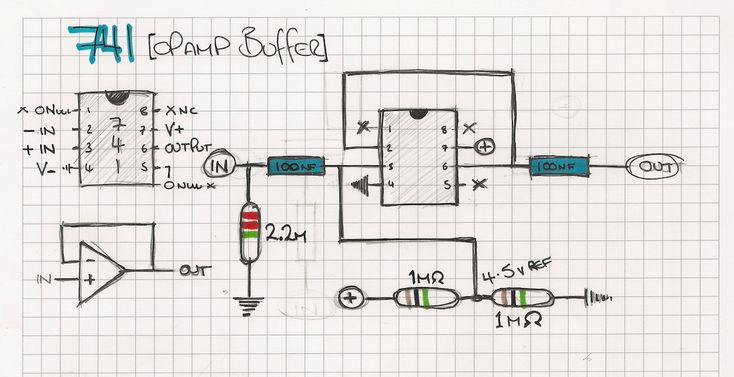 741 [OPAMP BUFFER]
x ONull 1 8 x NC
- IN 2 7 7 V+
+ IN 3 4 6 OUTPUT
V- 4 1 5 7
ONull x
IN
100NF
x 1 8 x
2 7 +
3 6
4 5 x
100NF
OUT
2.2M
- 
IN + OUT
+
1MΩ
4.5V REF
1MΩ